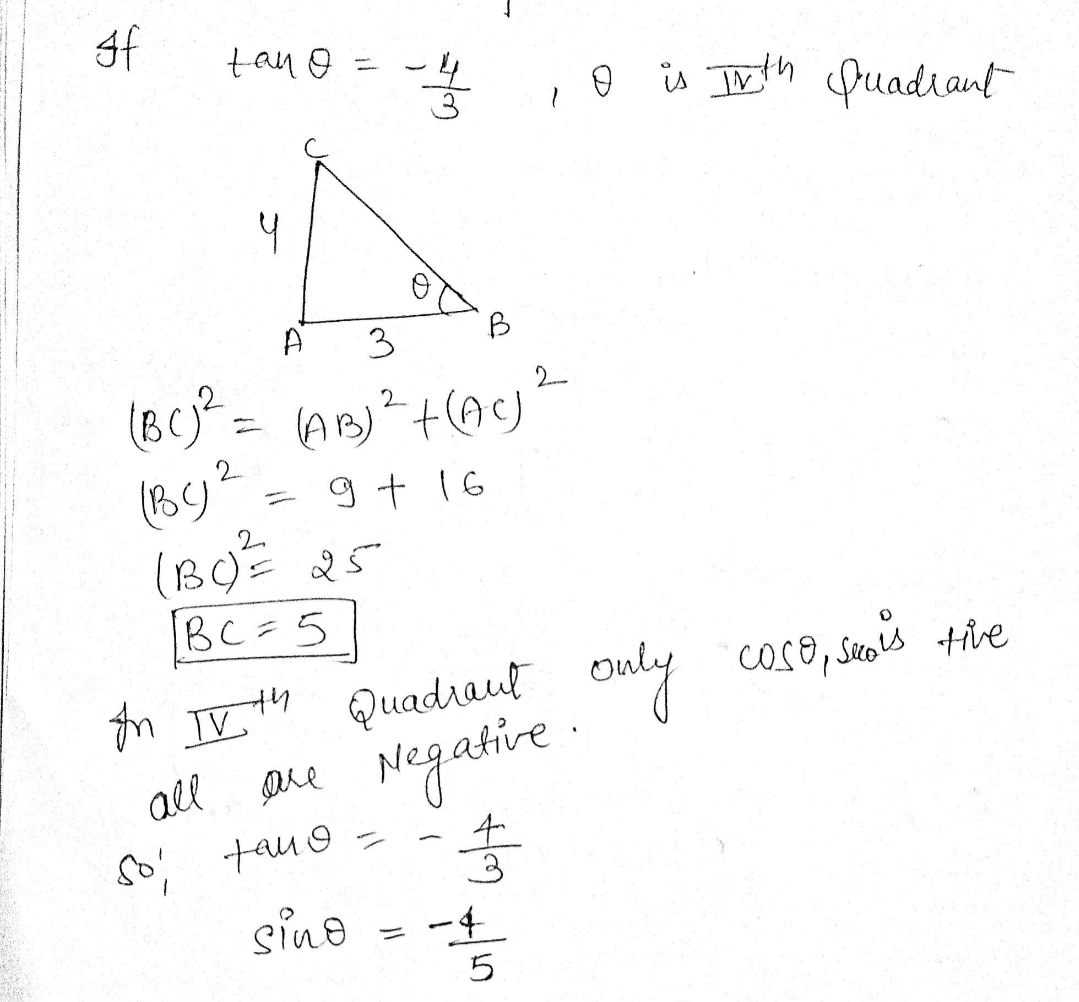 If tan θ = -4/3 , θ is IVth Quadrant
C
4
θ
A 3 B
(BC)² = (AB)² + (AC)²
(BC)² = 9 + 16
(BC)² = 25
BC = 5
In IVth Quadrant only cosθ, secθ is +ive
all are Negative.
so; tanθ = - 4/3
sinθ = -4/5